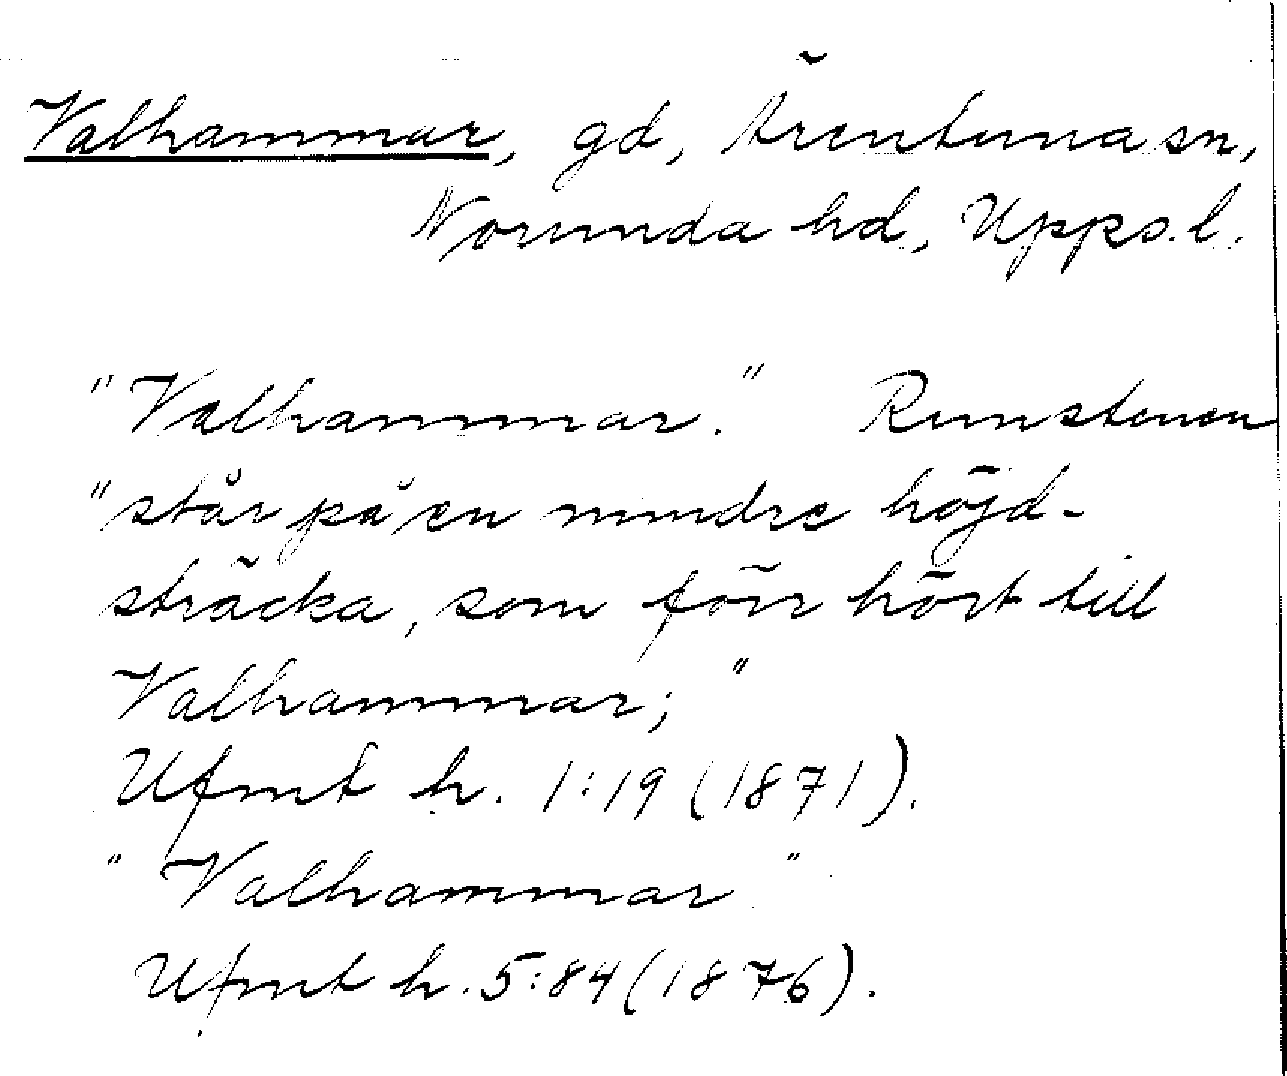 Valhammar, gd, Ärentuna sn,
Norunda hd, Upps. l.
"Valhammar." Runstenen
"står på en mindre höjd-
sträcka, som förr hört till
Valhammar;"
Ufmt h. 1:19 (1871).
"Valhammar"
Ufmt h. 5:84 (1876).